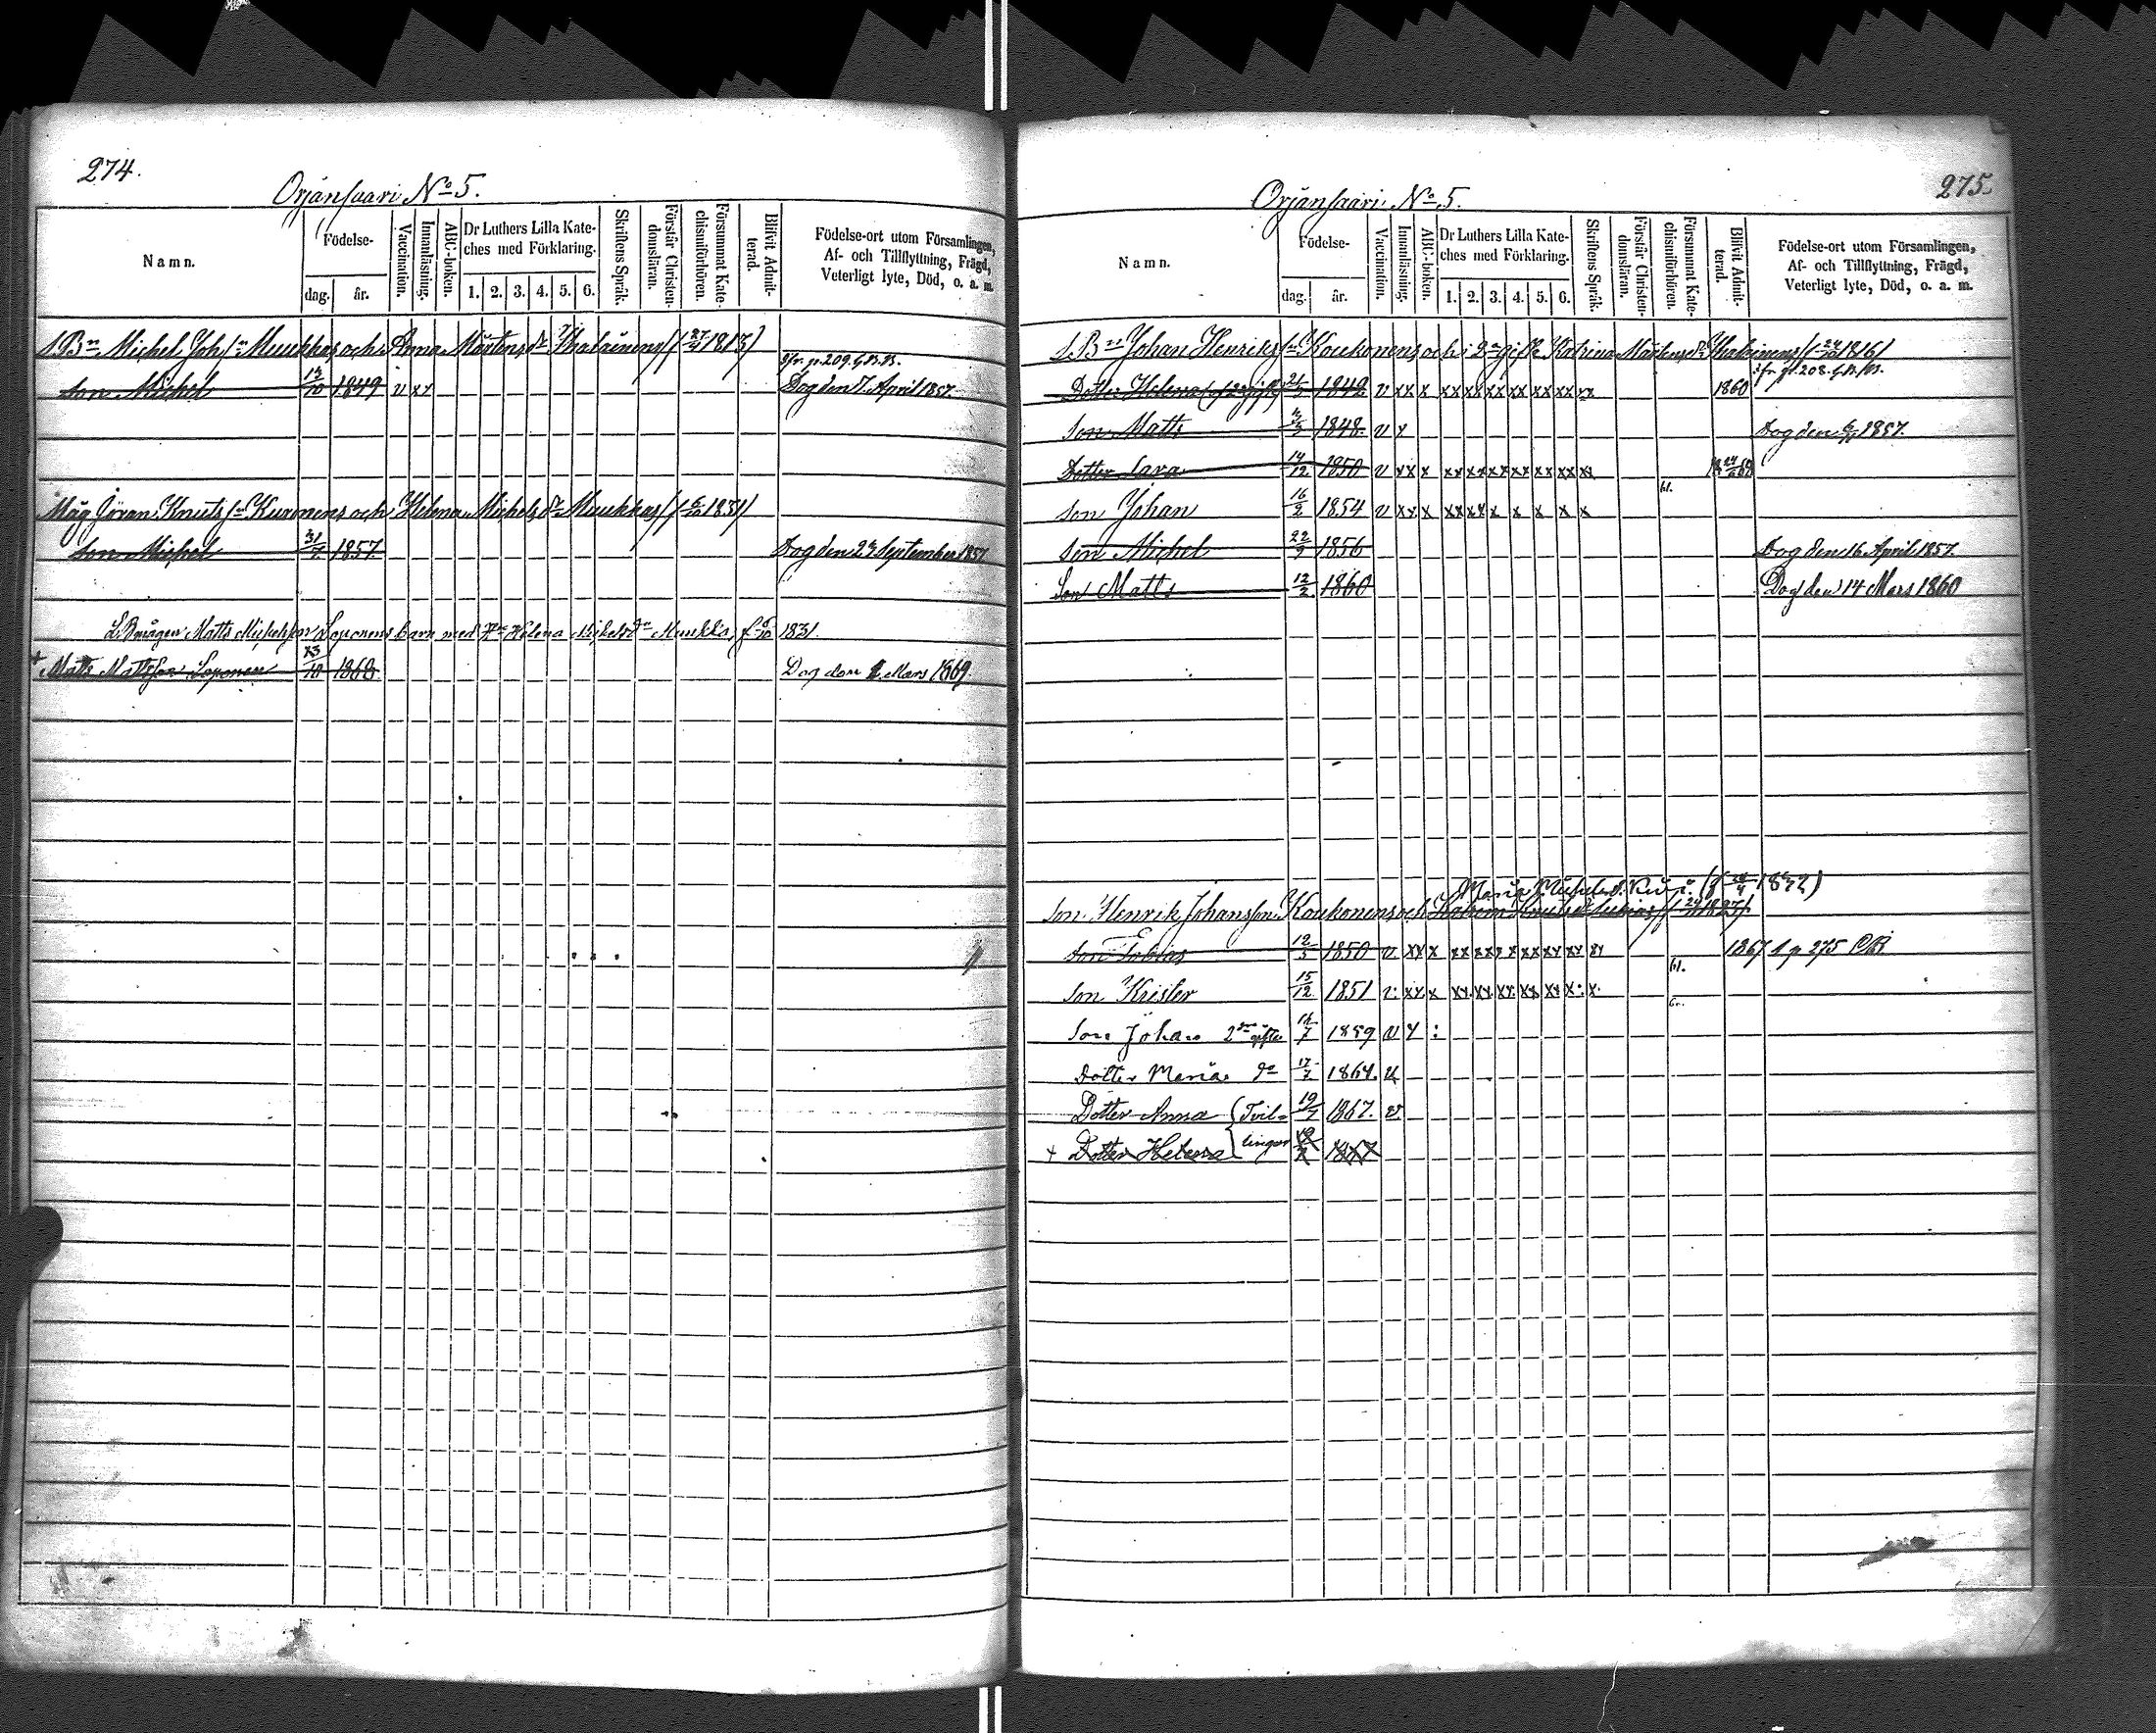 274.
Orjänsaari No 5.
Namn.
Födelse-
dag.
år.
Vaccination.
Innanläsning.
ABC-boken.
Dr Luthers Lilla Kate-
ches med Förklaring.
1. 2. 3. 4. 5. 6.
Skriftens Språk.
Förstår Christen-
domsläran.
Försummat Kate-
chismiförhören.
Blifvit Admit-
terad.
Födelse-ort utom Församlingen,
Af- och Tillflyttning, Frägd,
Veterligt lyte, Död, o. a. m.
Michel Joh Muukkas och Anna Mårtens dr Ihalainens (f 1813)
p. 209.
Son Michel 1849 v xx Dog den 7. April 1857.
Måg Jöran Knuts Kuronens och Helena Michels dr Muukkas (f 1831)
Son Michel 31/7 1857 Dog den 24 September 1857
Matts Michelsson Soponens barn med Helena Mikels dr Muukka, f 1831.
+ Matts Mattsson Soponen 1868 Dog den Mars 1869.
275.
Orjänsaari No 5.
Namn.
Födelse-
dag.
år.
Vaccination.
Innanläsning.
ABC-boken.
Dr Luthers Lilla Kate-
ches med Förklaring.
1. 2. 3. 4. 5. 6.
Skriftens Språk.
Förstår Christen-
domsläran.
Försummat Kate-
chismiförhören.
Blifvit Admit-
terad.
Födelse-ort utom Församlingen,
Af- och Tillflyttning, Frägd,
Veterligt lyte, Död, o. a. m.
Johan Henriks Koukonens och i 2a gifte Katrina Mårtens dr Ihalainens (f 1816)
p. 208.
Dotter Helena 1842 v xx x xx xx xx xx xx xx xx 1860
Son Matts 1848 v x Dog den 1857.
Dotter Sara 14/12 1850 v xx x xx xx xx xx xx xx xx
Son Johan 16/2 1854 v xx x xx xx x x x x x
Son Michel 22/9 1856 Dog den 16 April 1857.
Son Matts 12/2 1860 Dog den 14 Mars 1860
Maria Michels d.
Son Henrik Johansson Koukonens och
Son Tobias 12/5 1850 v xx x xx xx x x xx xx xx xx 1867 p 275
Son Krister 15/12 1851 v xx x xx xx xx xx xx x x
Son Johan 2dra giftet 1859 v x
Dotter Maria do 1864. v
Dotter Anna { Tvil- 19/7 1867. v
+ Dotter Helena { lingar